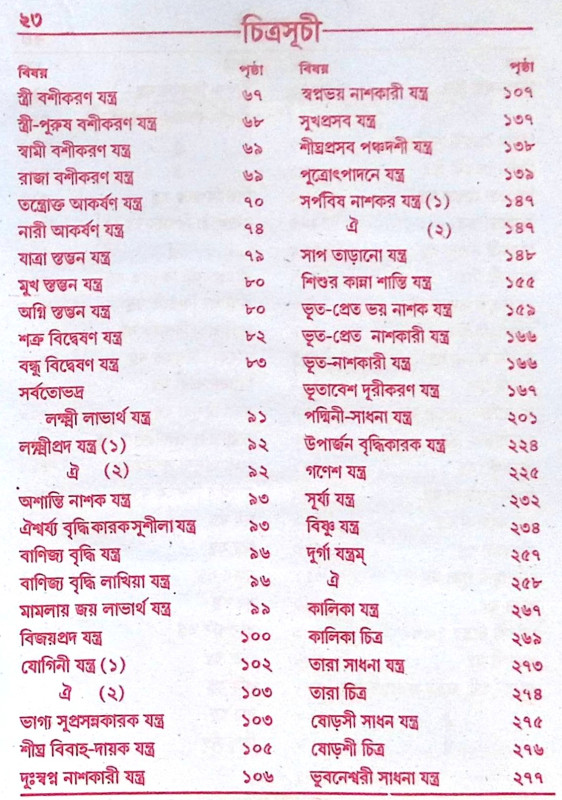 ২৩
চিত্রসূচী
বিষয় পৃষ্ঠা
স্ত্রী বশীকরণ যন্ত্র ৬৭
স্ত্রী-পুরুষ বশীকরণ যন্ত্র ৬৮
স্বামী বশীকরণ যন্ত্র ৬৯
রাজা বশীকরণ যন্ত্র ৬৯
তন্ত্রোক্ত আকর্ষণ যন্ত্র ৭০
নারী আকর্ষণ যন্ত্র ৭৪
যাত্রা স্তম্ভন যন্ত্র ৭৯
মুখ স্তম্ভন যন্ত্র ৮০
অগ্নি স্তম্ভন যন্ত্র ৮০
শত্রু বিদ্বেষণ যন্ত্র ৮২
বন্ধু বিদ্বেষণ যন্ত্র ৮৩
সর্বতোভদ্র
লক্ষ্মী লাভার্থ যন্ত্র ৯১
লক্ষ্মীপ্রদ যন্ত্র (১) ৯২
ঐ (২) ৯২
অশান্তি নাশক যন্ত্র ৯৩
ঐশ্বর্য্য বৃদ্ধি কারক সুশীলা যন্ত্র ৯৩
বাণিজ্য বৃদ্ধি যন্ত্র ৯৬
বাণিজ্য বৃদ্ধি লাখিয়া যন্ত্র ৯৬
মামলায় জয় লাভার্থ যন্ত্র ৯৯
বিজয়প্রদ যন্ত্র ১০০
যোগিনী যন্ত্র (১) ১০২
ঐ (২) ১০৩
ভাগ্য সুপ্রসন্নকারক যন্ত্র ১০৩
শীঘ্র বিবাহ-দায়ক যন্ত্র ১০৫
দুঃস্বপ্ন নাশকারী যন্ত্র ১০৬
বিষয় পৃষ্ঠা
স্বপ্নভয় নাশকারী যন্ত্র ১০৭
সুখপ্রসব যন্ত্র ১৩৭
শীঘ্রপ্রসব পঞ্চদশী যন্ত্র ১৩৮
পুত্রোৎপাদনে যন্ত্র ১৩৯
সর্পবিষ নাশকর যন্ত্র (১) ১৪৭
ঐ (২) ১৪৭
সাপ তাড়ানো যন্ত্র ১৪৮
শিশুর কান্না শান্তি যন্ত্র ১৫৫
ভূত-প্রেত ভয় নাশক যন্ত্র ১৫৯
ভূত-প্রেত নাশকারী যন্ত্র ১৬৬
ভূত-নাশকারী যন্ত্র ১৬৬
ভূতাবেশ দূরীকরণ যন্ত্র ১৬৭
পদ্মিনী-সাধনা যন্ত্র ২০১
উপার্জন বৃদ্ধিকারক যন্ত্র ২২৪
গণেশ যন্ত্র ২২৫
সূর্য্য যন্ত্র ২৩২
বিষ্ণু যন্ত্র ২৩৪
দুর্গা যন্ত্রম্ ২৫৭
ঐ ২৫৮
কালিকা যন্ত্র ২৬৭
কালিকা চিত্র ২৬৯
তারা সাধনা যন্ত্র ২৭৩
তারা চিত্র ২৭৪
ষোড়সী সাধন যন্ত্র ২৭৫
ষোড়শী চিত্র ২৭৬
ভুবনেশ্বরী সাধনা যন্ত্র ২৭৭